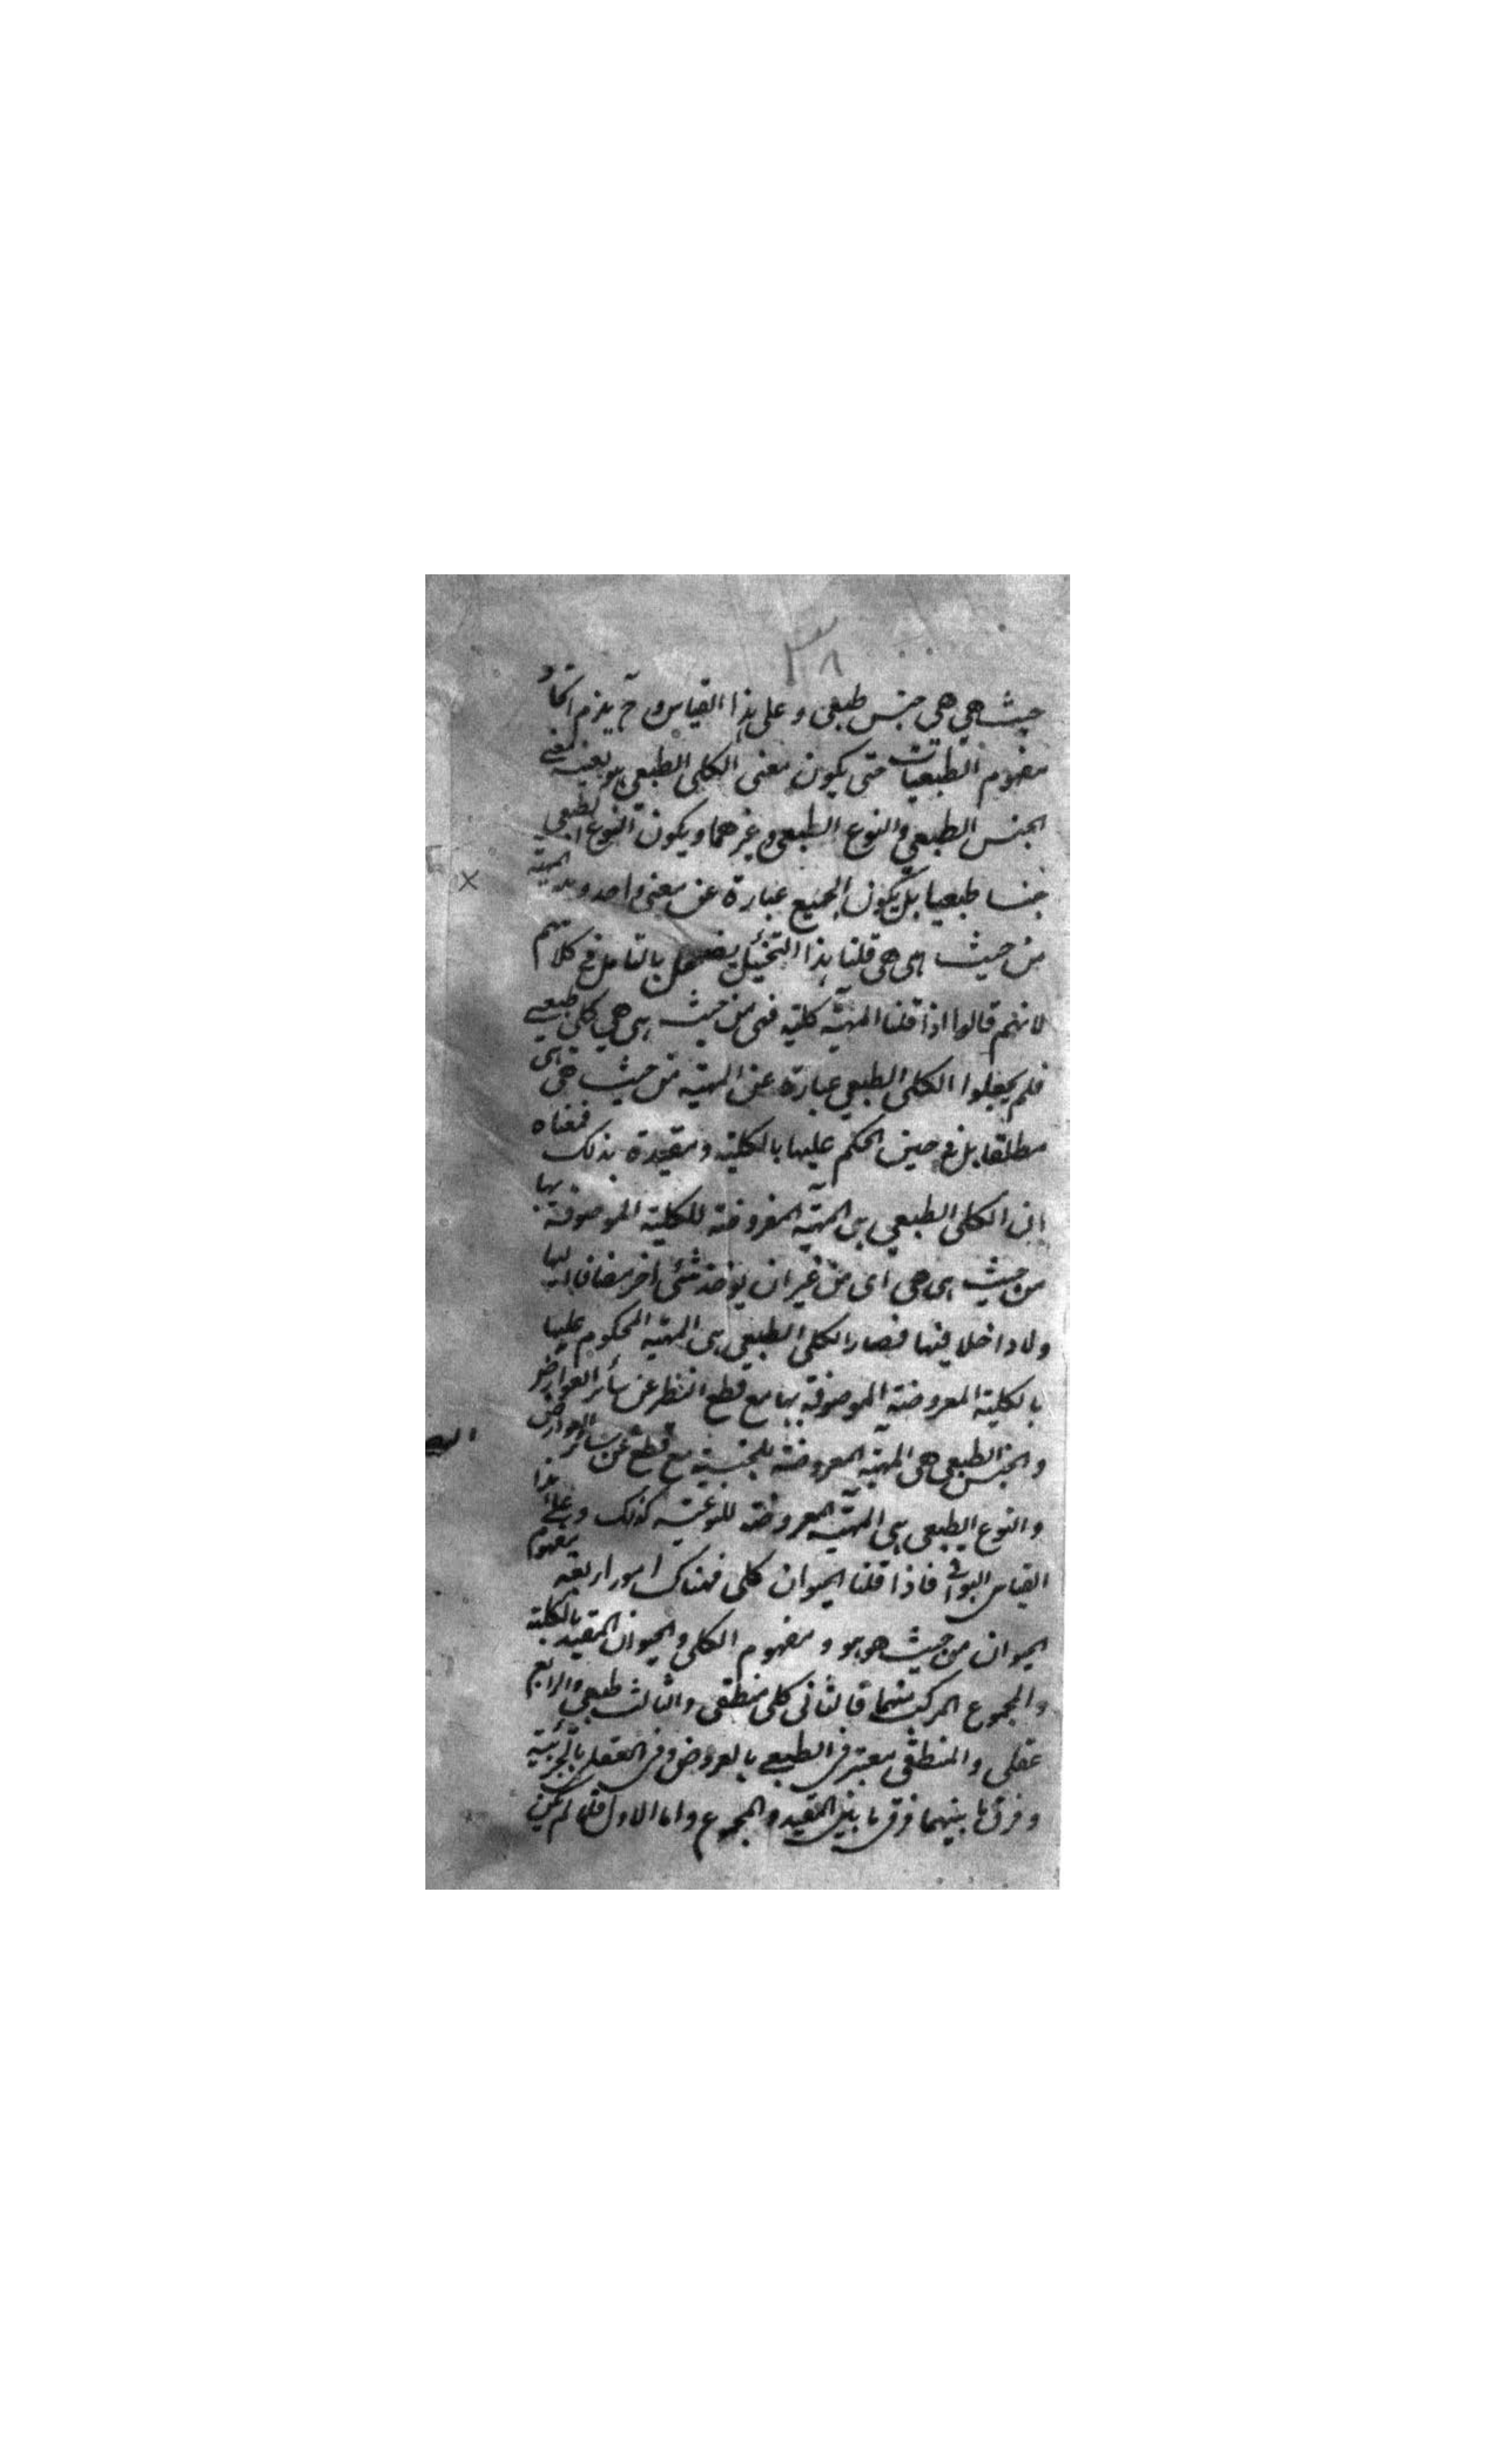 ٣٨
حيث هي هي جنس طبعي وعلى هذا القياس وح يلزم اتحاد
مفهوم الطبعيات حتى يكون معنى الكلي الطبعي هو بعينه معنى
الجنس الطبعي والنوع الطبعي وغيرهما ويكون النوع الطبعي
جنسا طبعيا بل يكون الجميع عبارة عن معنى واحد وهو المهية
من حيث هي هي قلنا هذا التخيل يضمحل بالتامل في كلامهم
لانهم قالوا اذا قلنا المهية كلية فهي من حيث هي هي كلي طبعي
فلم يجعلوا الكلي الطبعي عبارة عن المهية من حيث هي هي
مطلقا بل في حين الحكم عليها بالكلية ومقيدة بذلك فمعناه
ان الكلي الطبعي هي المهية المعروضة للكلية الموصوفة بها
من حيث هي هي اى من غير ان يوخذ شئى اخر مضافا اليها
ولا داخلا فيها فصار الكلي الطبعي هى المهية المحكوم عليها
بالكلية المعروضة الموصوفة بها مع قطع النظر عن سائر العوارض
والجنس الطبعي هي المهية المعروضة للجنسية مع قطع عن سائر العوارض
والنوع الطبعي هي المهية المعروضة للنوعية كذلك وعلى هذا
القياس البواقي فاذا قلنا الحيوان كلي فهناك امور اربعة مفهوم
الحيوان من حيث هو هو ومفهوم الكلي والحيوان المقيد بالكلية
والمجموع المركب منهما فالثاني كلي منطقي والثالث طبعي والرابع
عقلي والمنطقي معتبر في الطبعي بالعروض وفي العقلي بالجزئية
وفرق ما بينهما فرق ما بين المقيد والمجموع واما الاول فلما لم يكن